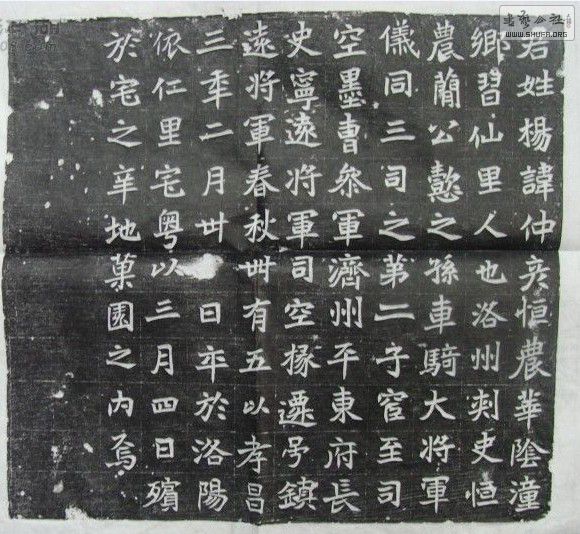 君姓楊諱仲彦恒農華陰潼
鄉習仙里人也洛州刾史恒
農蕳公懿之孫車騎大将軍
儀同三司之苐二子官至司
空墨曹叅軍濟州平東府長
史寧遠将軍司空掾遷号鎮
遠将軍春秋卌有五以孝昌
三年二月卅日卒於洛陽
依仁里宅粤以三月四日殯
於宅之辛地菓園之内焉
书艺公社
WWW.SHUFA.ORG